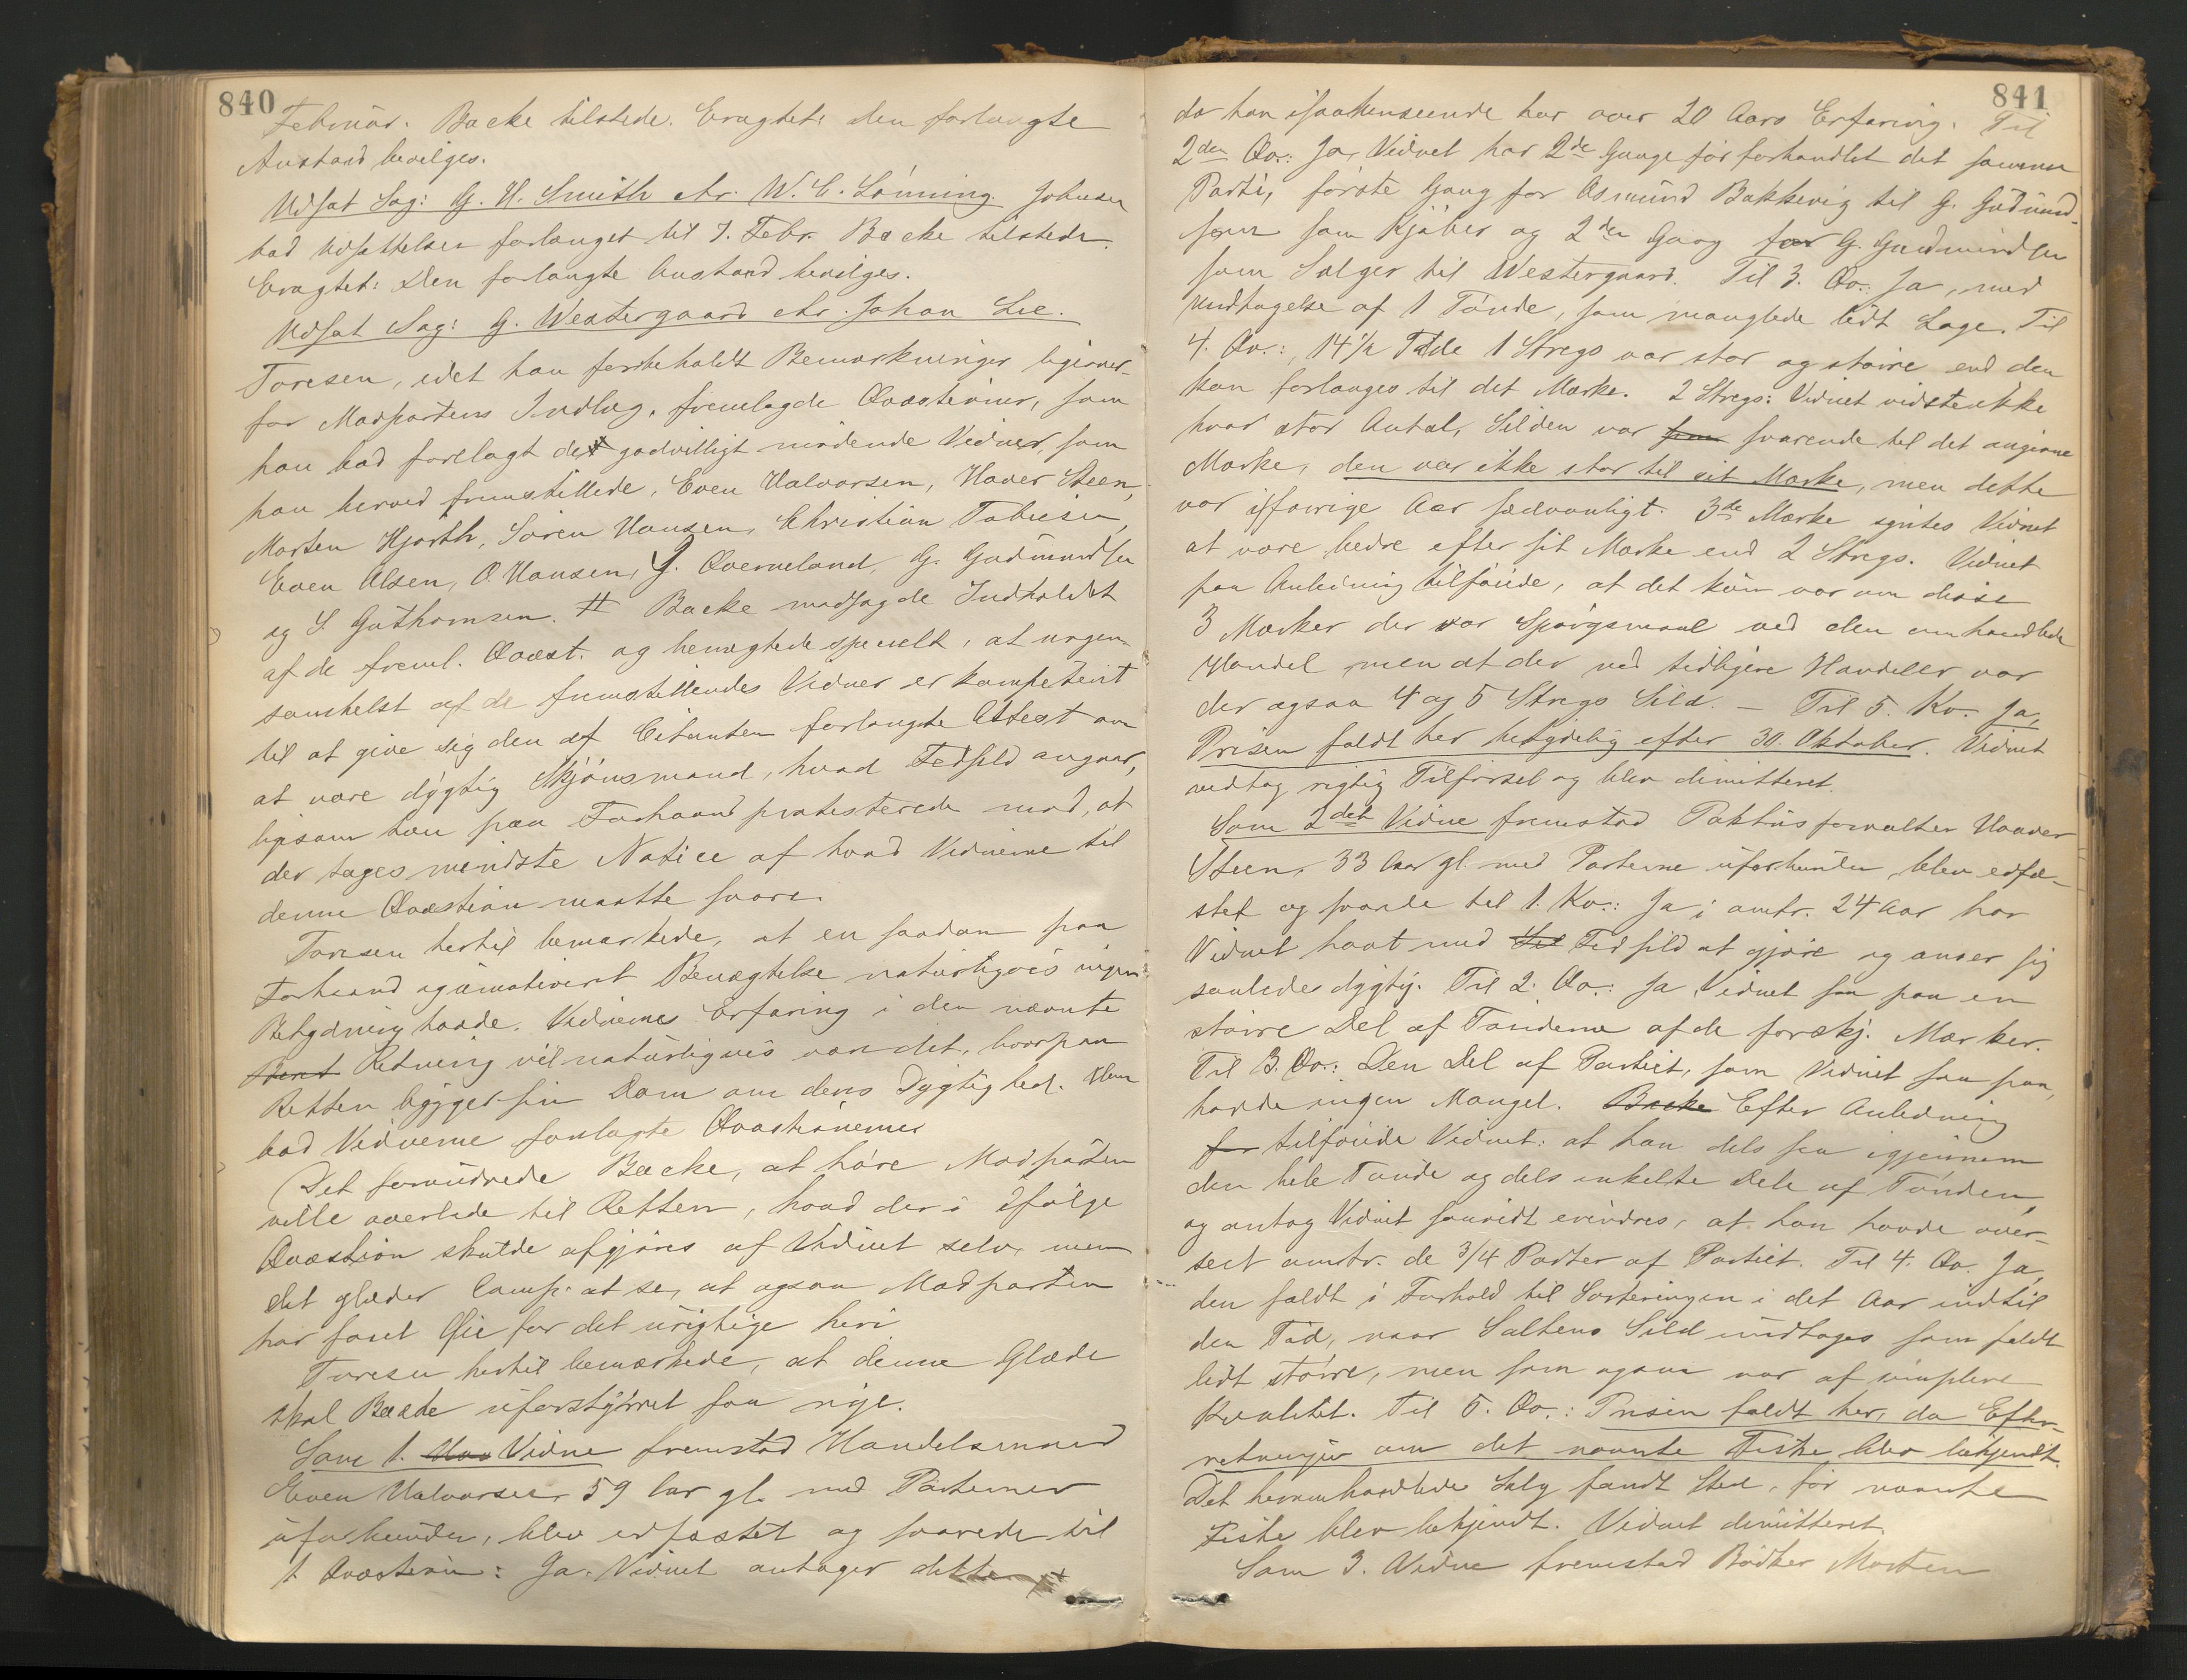 840
Februar. Backe tilstede. Eragtet: den forlangte
Anstand bevilges.
Udsat Sag: G. H. Smith ctr. W. C. Lönning. Johnsen
bad Udsættelsen forlænget til 7. Febr. Backe tilstede.
Eragtet: Den forlangte Anstand bevilges.
Udsat Sag: G. Westergaard ctr. Johan Lie.
Toresen, idet han forbeholdt Bemærkninger ligeover-
for Modpartens Indlæg, fremlagde Qvæstioner, som
han bad forelagt de godvilligt mödende Vidner, som
han herved fremstillede, Even Halvorsen, Haaver Steen,
Morten Hjorth, Sören Hansen, Christian Tobiesen,
Even Olsen, O. Hansen, J. Qverneland, G. Gudmundsen
og S. Guthormsen. # Backe modsagde Indholdet
af de freml. Qvæst. og benægtede specielt, at nogen-
somhelst af de fremstillendes Vidner er kompetent
til at give sig den af Citanten forlangte Attest om
at være dygtig Skjönsmand, hvad Fedsild angaar,
ligesom han paa Forhaand protesterede mod, at
der tages mindste Notice af hvad Vidnerne til
denne Qvæstion maatte svare.
Toresen hertil bemærkede, at en saadan paa
Forhaand og umotiveret Benægtelse naturligvis ingen
Betydning havde. Vidnernes Erfaring i den nævnte
Retning vil naturligvis være det, hvorpaa
Retten bygger sin Dom om dens Dygtighed. Han
bad Vidnerne forelagte Qvæstionerne.
Det forundrede Backe, at höre Modparten
ville overlade til Retten, hvad der i Ifölge
Qvæstion skulde afgjöres af Vidnet selv, men
det glæder Comp. at se, at ogsaa Modparten
har faaet Öie for det urigtige heri
Toresen hertil bemærkede, at denne Glæde
skal Backe uforstyrret faa nyde.
Som 1. Vidne fremstod Handelsmand
Even Halvorsen 59 Aar gl. med Parterne
uforbunden, blev edfæstet og svarede til
1 Qvæstion: Ja. Vidnet antager dette
841
da han i saahenseende har over 20 Aars Erfaring. Til
2den Qv.: Ja, Vidnet har 2de Gange för forhandlet det samme
Parti, förste Gang for Osmund Bakkevig til G. Gudmund-
sen som Kjöber og 2den Gang for G. Gudmundsen
som Sælger til Westergaard. Til 3. Qv.: Ja, med
Undtagelse af 1 Tönde, som manglede lidt Lage. Til
4. Qv.: 14 1/2 Tdde 1 Stregs var stor og större end den
kan forlanges til det Mærke. 2 Stregs: Vidnet vidste ikke
hvor stor Antal, Silden var svarende til det angivne
Mærke, den var ikke stor til sit Mærke, men dette
var ifforrige Aar sædvanligt. 3de Mærke syntes Vidnet
at være bedre efter sit Mærke end 2 Stregs. Vidnet
paa Anledning tilföiede, at det kun var om disse
3 Mærker der var Spörgsmaal ved den omhandlede
Handel men at der ved tidligere Handeler var
der ogsaa 4 og 5 Stregs Sild. – Til 5. Kv. Ja,
Prisen faldt her betydelig efter 30. Oktober. Vidnet
vedtog rigtig Tilförsel og blev dimitteret.
Som 2det Vidne fremstod Pakhusforvalter Haaver
Steen, 33 Aar gl. med Parterne uforbunden, blev edfæ-
stet og svarede til 1. Kv.: Ja i omtr. 24 Aar har
Vidnet havt med Fedsild at gjöre og anser sig
saaledes dygtig. Til 2. Qv.: Ja Vidnet saa paa en
större Del af Tönderne af de forskj. Mærker.
Til 3. Qv.: Den Del af Partiet, som Vidnet saa paa,
havde ingen Mangel. Efter Anledning
tilföiede Vidnet: at han dels saa igjennem
den hele Tönde og dels enkelte Dele af Tönden,
og antog Vidnet saavidt erindres, at han havde over-
seet omtr. de 3/4 Parter af Partiet. Til 4. Qv. Ja,
den faldt i Forhold til Sorteringen i det Aar indtil
den Tid, naar Saltens Sild undtages som faldt
lidt större, men som ogsaa var af simplere
Kvalitet. Til 5. Qv.: Prisen faldt her, da Efter-
retninger om det nævnte Fiske blev bekjendt.
Det heromhandlede Salg fandt Sted, för nævnte
Fiske blev bekjendt. Vidnet dimitteret.
Som 3. Vidne fremstod Bödker Morten